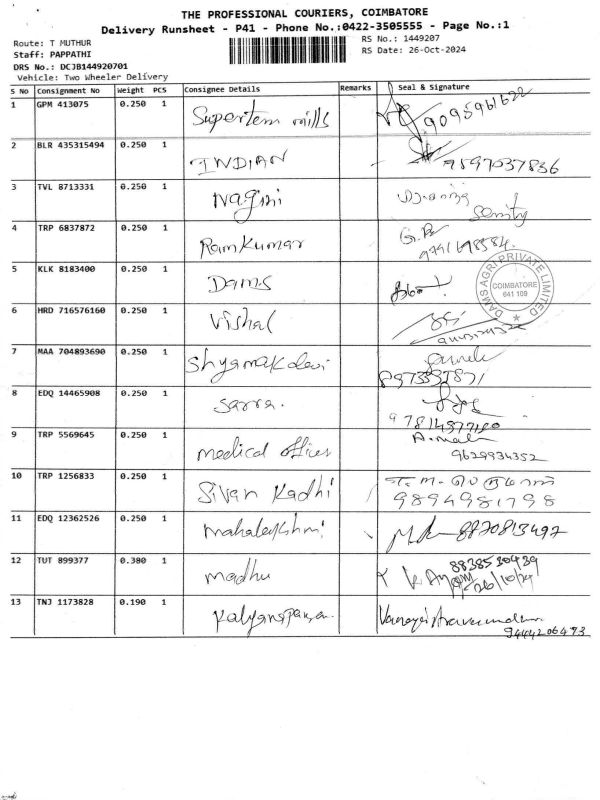 THE PROFESSIONAL COURIERS, COIMBATORE
Delivery Runsheet - P41 - Phone No.:0422-3505555 - Page No.:1
Route: T MUTHUR
RS No.: 1449207
Staff: PAPPATHI
RS Date: 26-Oct-2024
DRS No.: DCJB144920701
Vehicle: Two Wheeler Delivery
S No Consignment No Weight PCS Consignee Details Remarks Seal & Signature
1 GPM 413075 0.250 1 Supertem mills 9095961622
2 BLR 435315494 0.250 1 INDIAN 9597037836
3 TVL 8713331 0.250 1 Nagini
4 TRP 6837872 0.250 1 Ramkumar
5 KLK 8183400 0.250 1 Dams
DAMS AGRI PRIVATE LIMITED
COIMBATORE
641 109
6 HRD 716576160 0.250 1 Vishal
7 MAA 704893690 0.250 1 Shyamak devi
8 EDQ 14465908 0.250 1 Sarra.
9 TRP 5569645 0.250 1 medical officer 9629934352
10 TRP 1256833 0.250 1 Sivan Kadhi 9894981798
11 EDQ 12362526 0.250 1 Mahalekshmi 8870813497
12 TUT 899377 0.380 1 madhu 8838530439
26/10/24
13 TNJ 1173828 0.190 1
9444206473